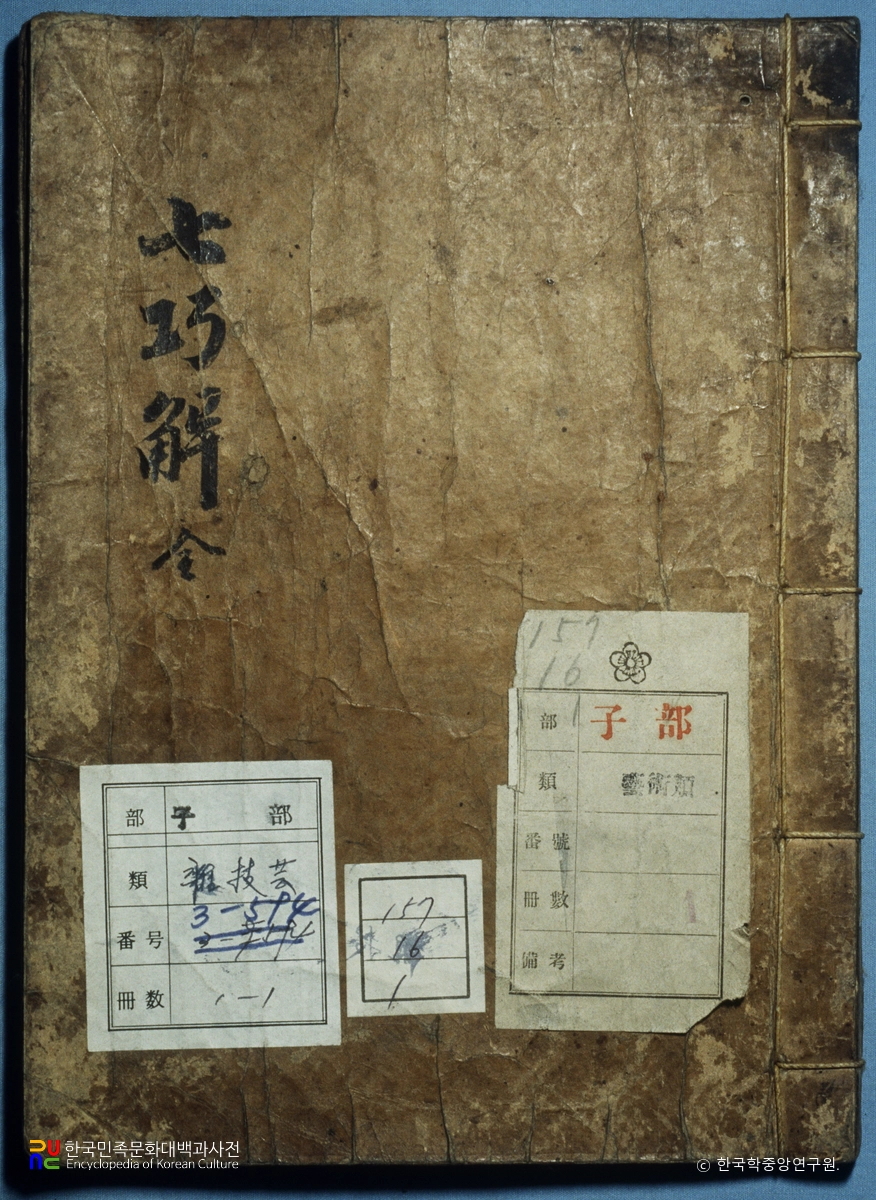 七巧解全
157
16
1
部 子部
類 藝術類
番號
冊數 1
備考
部 子部
類 雜技芸
番号 3-594
冊数 1-1
157
16
1
한국민족문화대백과사전
Encyclopedia of Korean Culture
© 한국학중앙연구원.